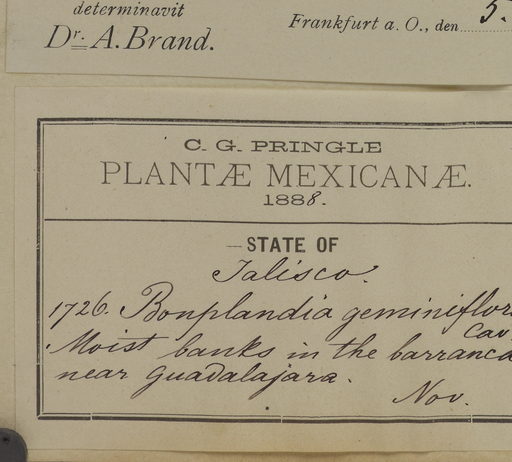 determinavit
Dr. A. Brand.
Frankfurt a. O., den 5.
C. G. PRINGLE
PLANTÆ MEXICANÆ.
1888.
—STATE OF
Jalisco.
1726. Bonplandia geminiflor
Cav
Moist banks in the barranca
near Guadalajara.
Nov.